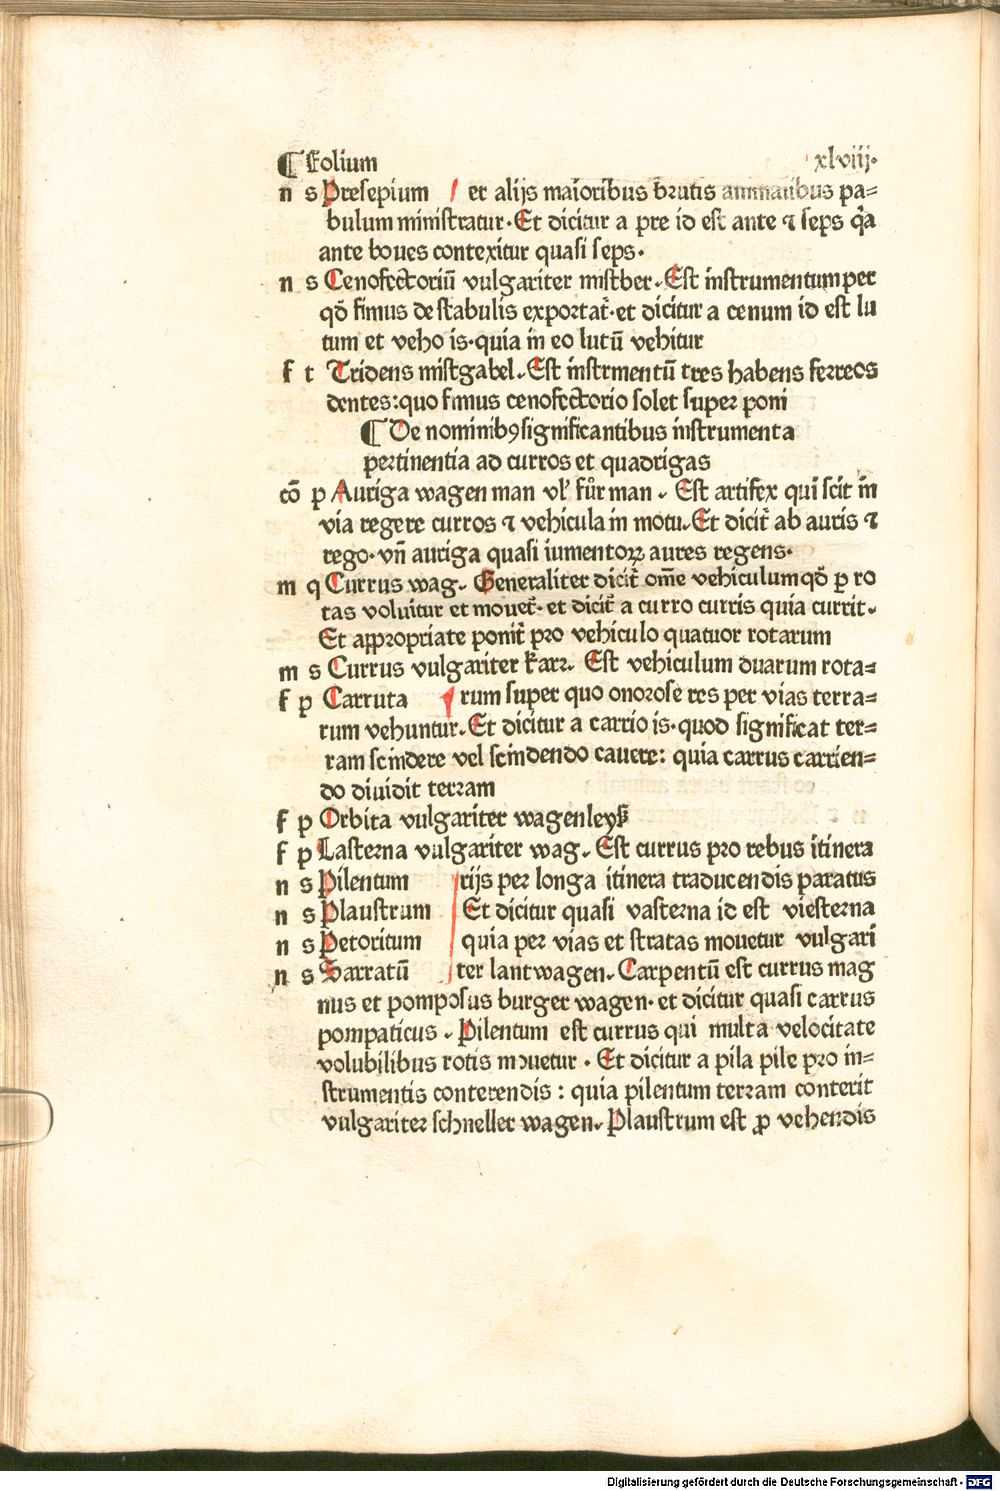 ¶ Folium xlviij.
n s Presepium et alijs maioribus brutis animalibus pa=
bulum ministratur. Et dicitur a pre id est ante ⁊ seps q̈a
ante boues contexitur quasi seps.
n s Cenofectoriū vulgariter mistber. Est instrumentum per
qd̄ fimus de stabulis exportat̄. et dicitur a cenum id est lu
tum et veho is. quia in eo lutū vehitur
f t Tridens mistgabel. Est instrmentū tres habens ferreos
dentes: quo fimus cenofectorio solet super poni
¶ De nominibꝰ significantibus instrumenta
pertinentia ad curros et quadrigas
cō p Auriga wagen man vl' fůr man. Est artifex qui scit in
via regere curros ⁊ vehicula in motu. Et dicit̄ ab auris ⁊
rego. vn̄ auriga quasi iumentoꝝ aures regens.
m q Currus wag. Generaliter dicit̄ om̄e vehiculum qd̄ p ro
tas voluitur et mouet̄. et dicit̄ a curro curris quia currit.
Et appropriate ponit̄ pro vehiculo quatuor rotarum
m s Currus vulgariter karr. Est vehiculum duarum rota=
f p Carruta rum super quo onorose res per vias terra=
rum vehuntur. Et dicitur a carrio is. quod significat ter=
ram scindere vel scindendo cauere: quia carrus carrien=
do diuidit terram
f p Orbita vulgariter wagenleyß
f p Lasterna vulgariter wag. Est currus pro rebus itinera
n s Pilentum rijs per longa itinera traducendis paratus
n s Plaustrum Et dicitur quasi vasterna id est viesterna
n s Petoritum quia per vias et stratas mouetur vulgari
n s Sarratū ter lantwagen. Carpentū est currus mag
nus et pomposus burger wagen. et dicitur quasi carrus
pompaticus. Pilentum est currus qui multa velocitate
volubilibus rotis mouetur. Et dicitur a pila pile pro in=
strumentis conterendis: quia pilentum terram conterit
vulgariter schneller wagen. Plaustrum est ꝓ vehendis
Digitalisierung gefördert durch die Deutsche Forschungsgemeinschaft - DFG